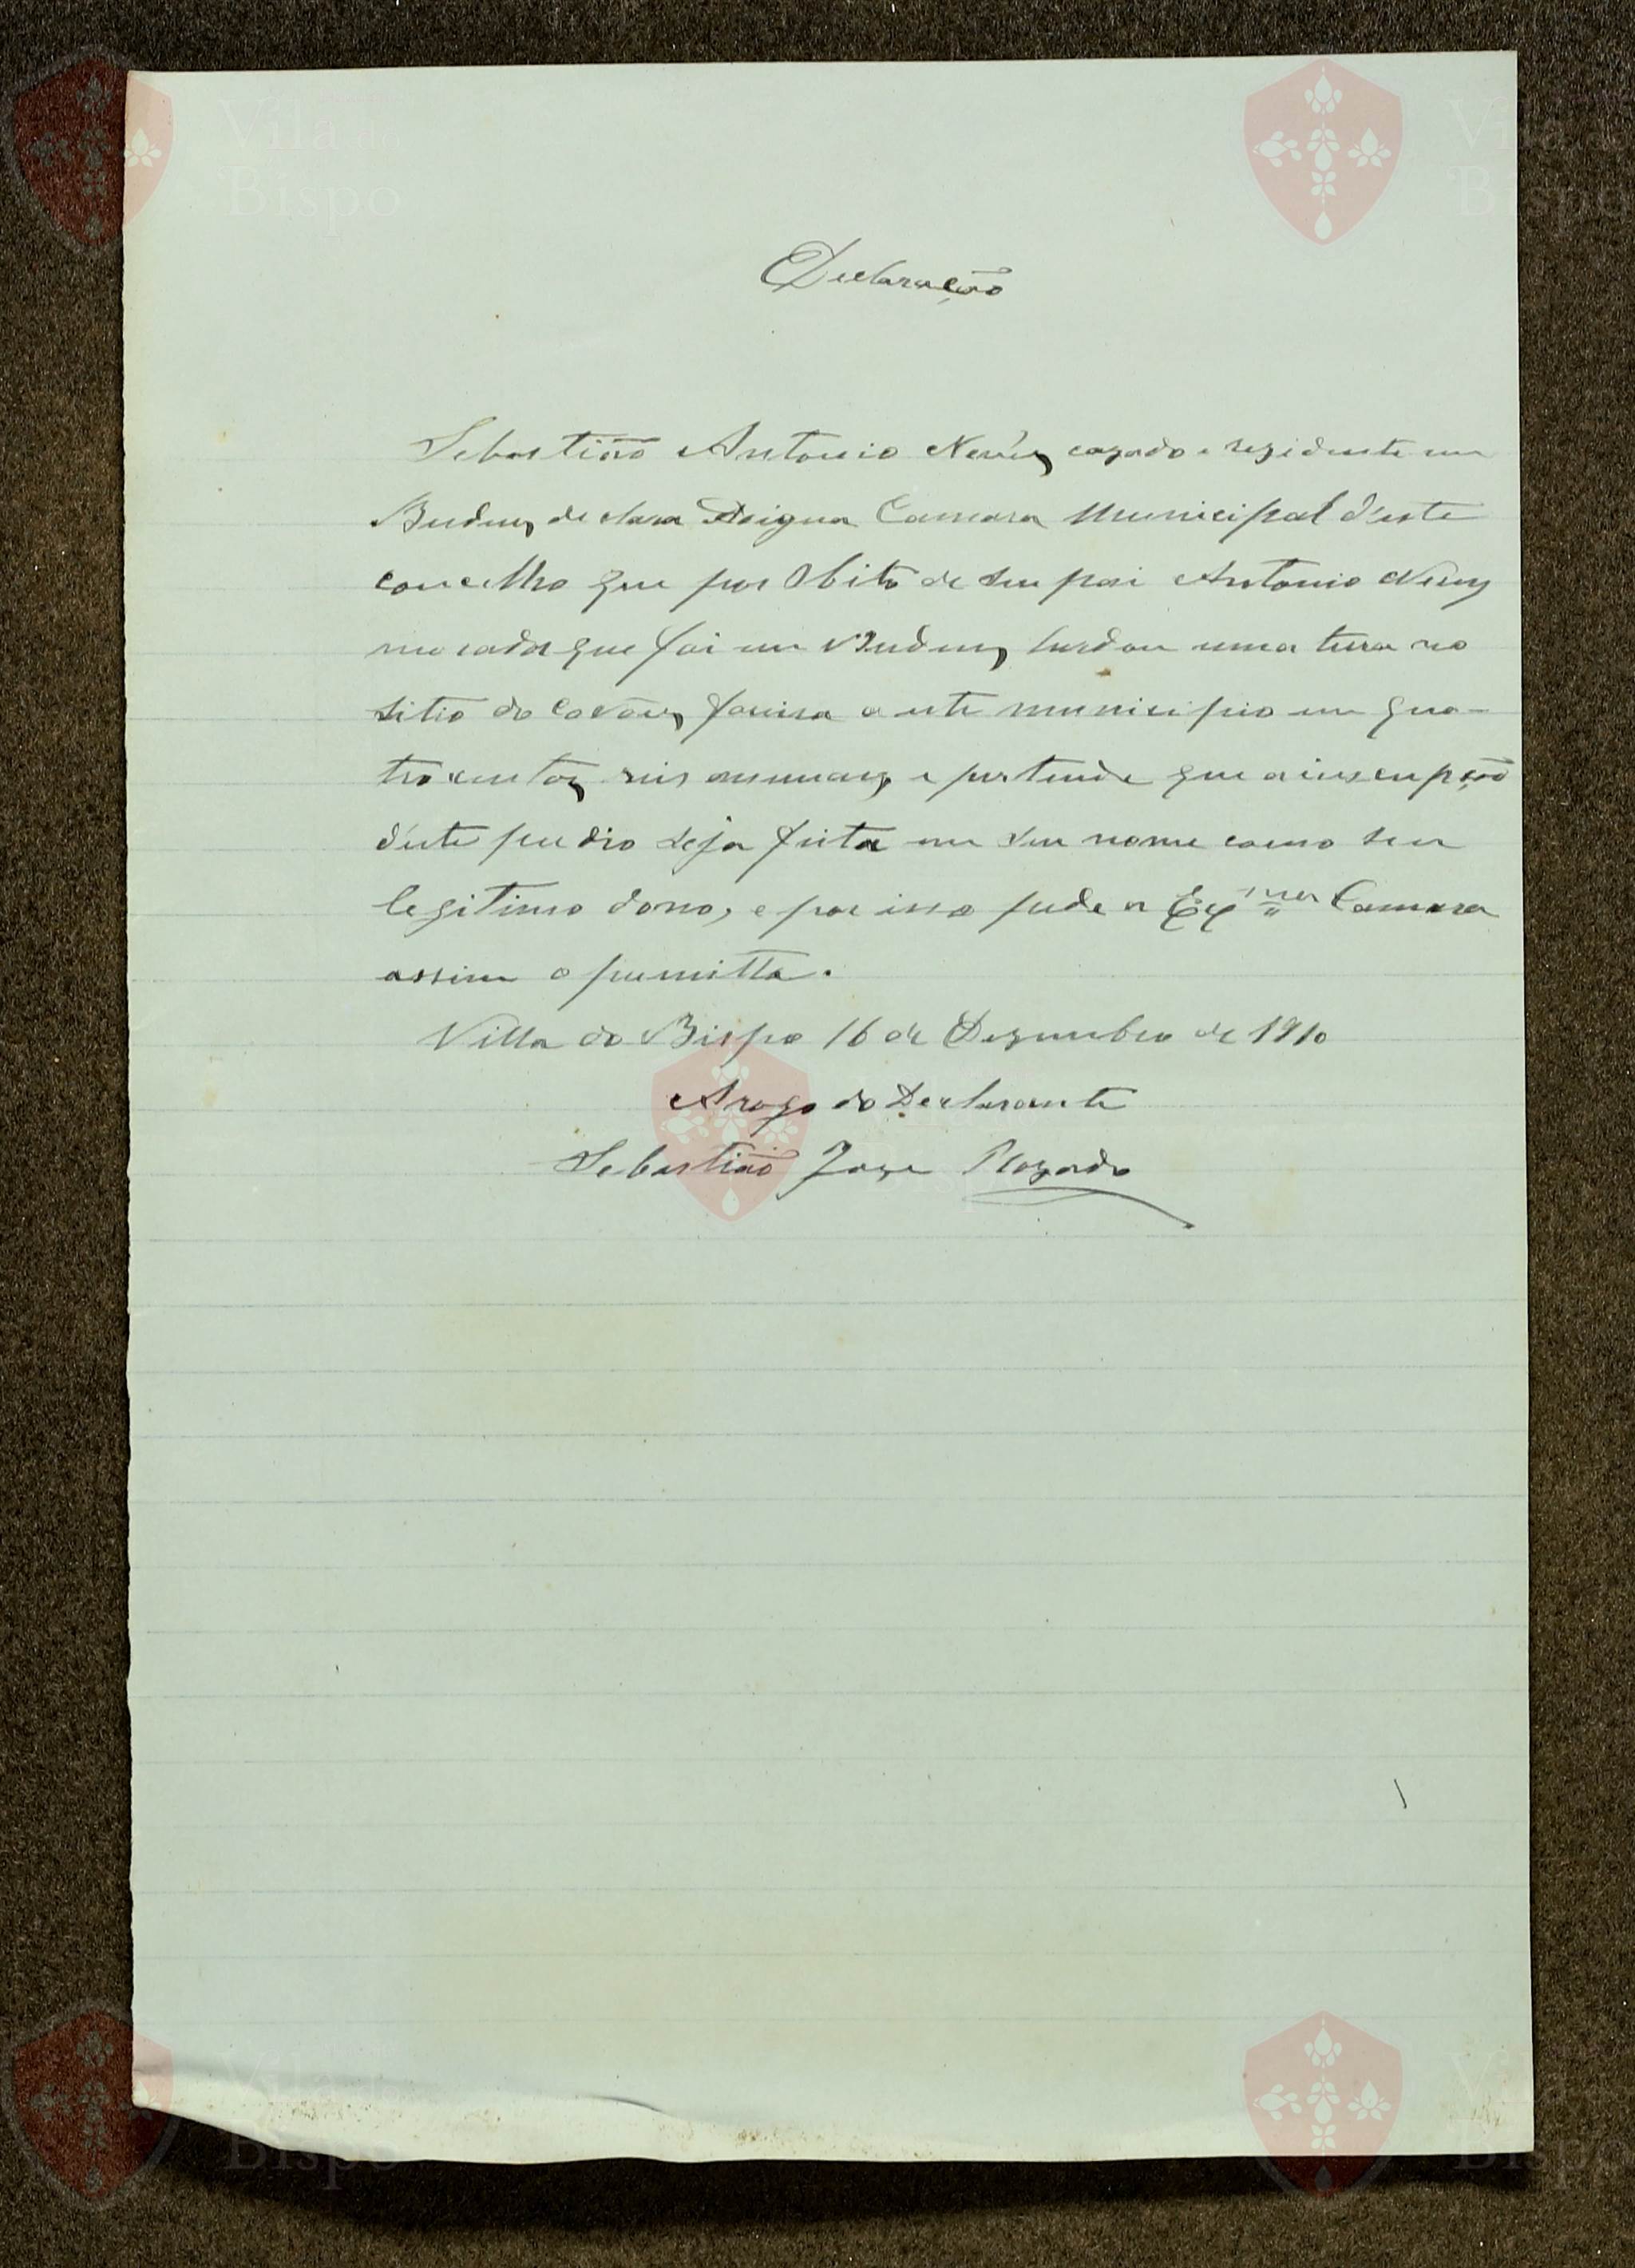 Declaração
Sebastião Antonio Neves, cazado e rezidente em
Budens, declara Á Digna Camara Municipal d'este
concelho que por Obito de seu pai Antonio Neves
morador que foi em Budens, herdou uma terra no
sitio do Covões, foreira a este municipio em qua-
trocentos reis annuaes, e pertende que a inscripção
d'este predio seja feita em seu nome como seu
legitimo dono, e por isso pede a Exma Camara
assim o permitta.
Villa do Bispo 16 de Dezembro de 1910
Arogo do Declarante
Sebastião Joze Rozado
Vila do
Bispo